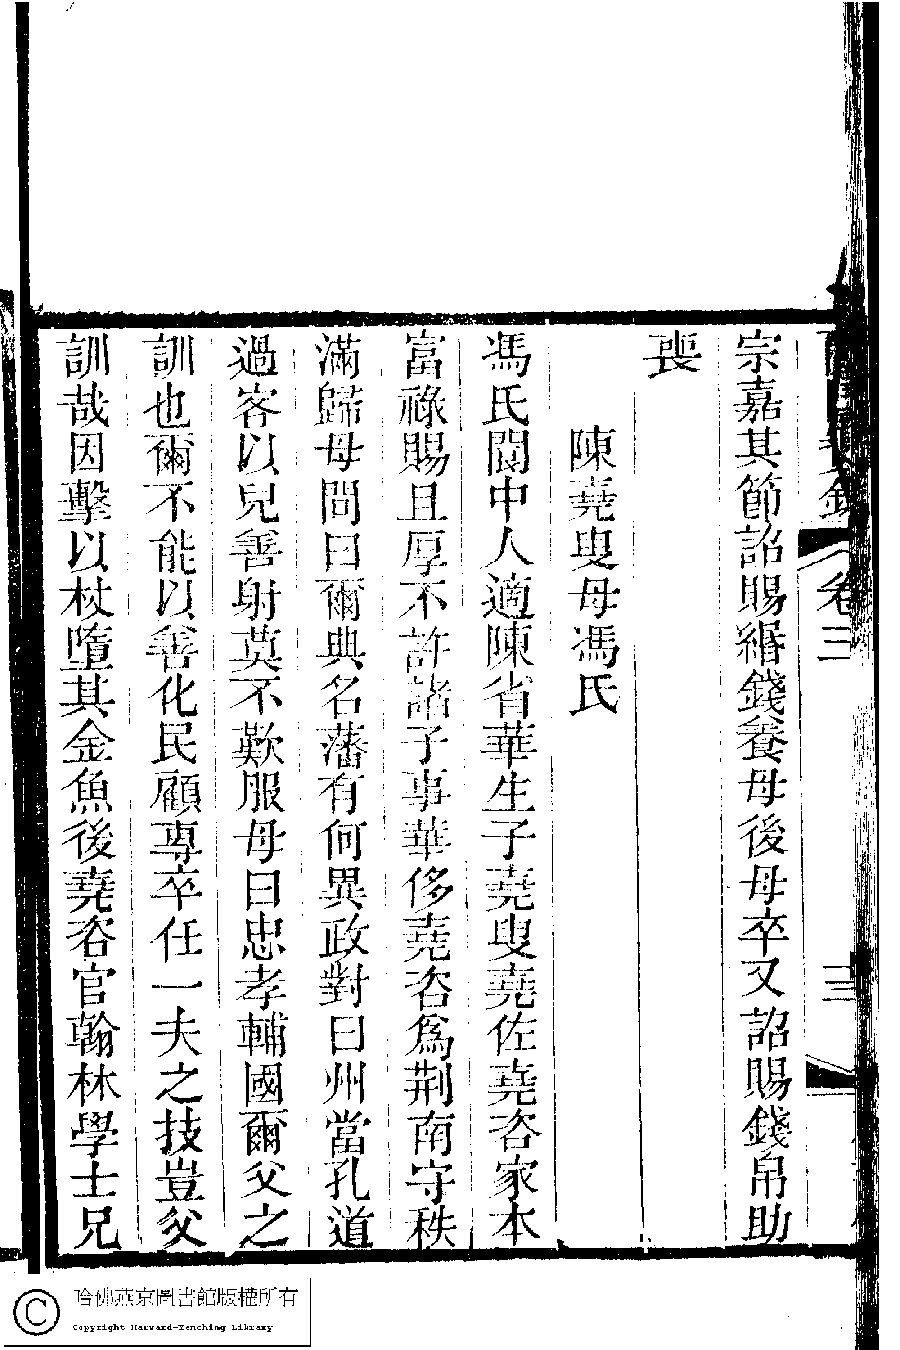 卷三
三
宗嘉其節詔賜緡錢養母後母卒又詔賜錢帛助
喪
陳堯叟母馮氏
馮氏閬中人適陳省華生子堯叟堯佐堯咨家本
富祿賜且厚不許諸子事華侈堯咨爲荆南守秩
滿歸母問曰爾典名藩有何異政對曰州當孔道
過客以兒善射莫不歎服母曰忠孝輔國爾父之
訓也爾不能以善化民顧專卒任一夫之技豈父
訓哉因擊以杖墮其金魚後堯咨官翰林學士兄
哈佛燕京圖書館版權所有
Copyright Harvard-Yenching Library